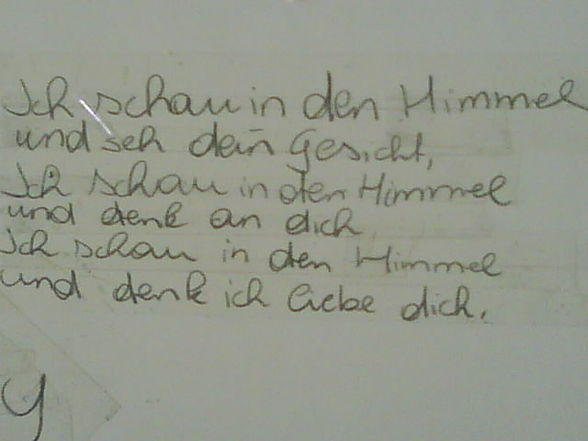 Ich schau in den Himmel
und seh dein Gesicht,
Ich schau in den Himmel
und denk an dich
Ich schau in den Himmel
und denk ich liebe dich.
y